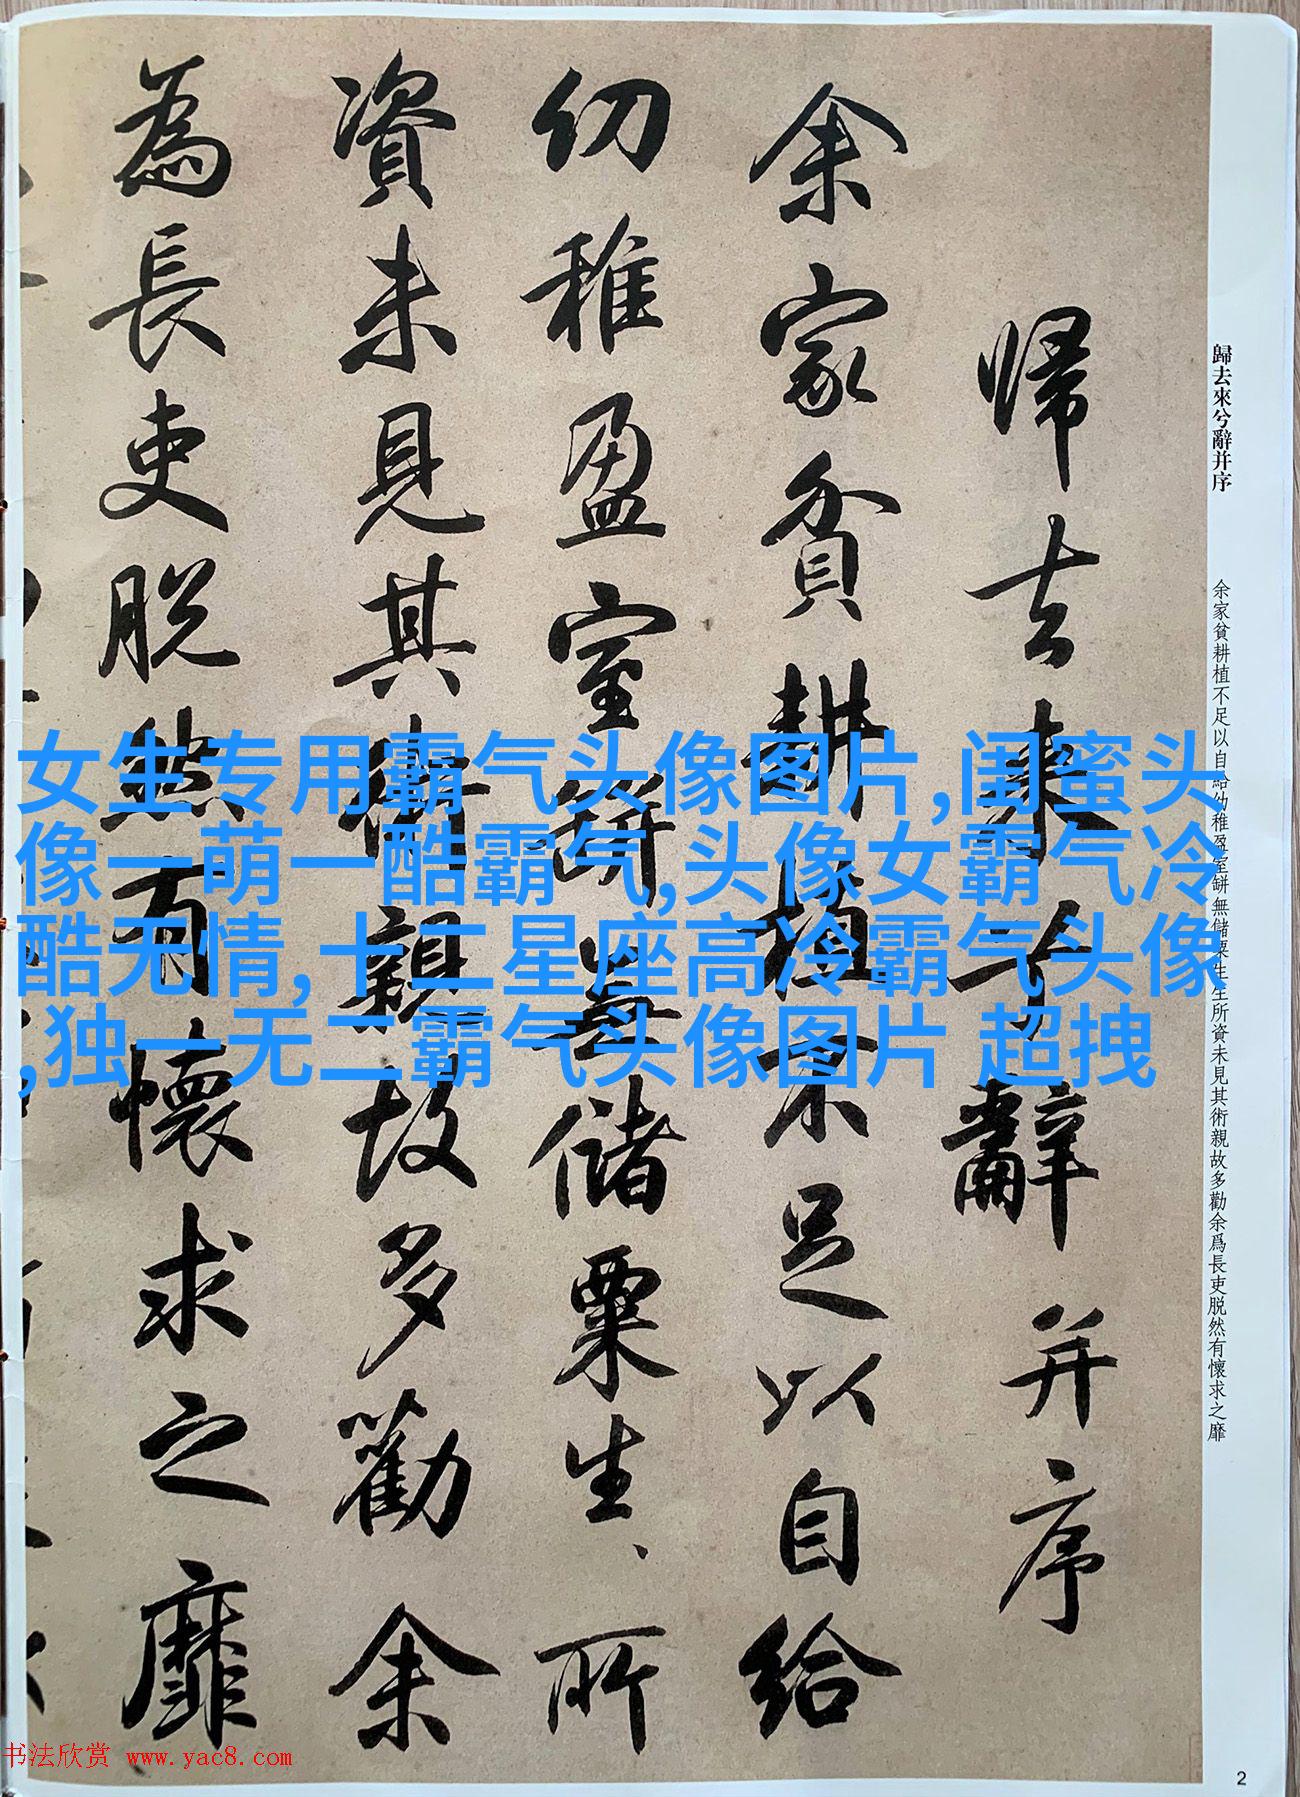 歸去來兮辭并序
余家貧耕植不足以自給
幼稚盈室缾無儲粟生生所
資未見其術親故多勸余
為長吏脫然有懷求之靡
歸去來兮辭并序
余家貧耕植不足以自給幼稚盈室缾無儲粟生生所資未見其術親故多勸余爲長吏脱然有懷求之靡
女生专用霸气头像图片,闺蜜头
像一萌一酷霸气,头像女霸气冷
酷无情,十二星座高冷霸气头像
,独一无二霸气头像图片 超拽
书法欣赏 www.yac8.com
2